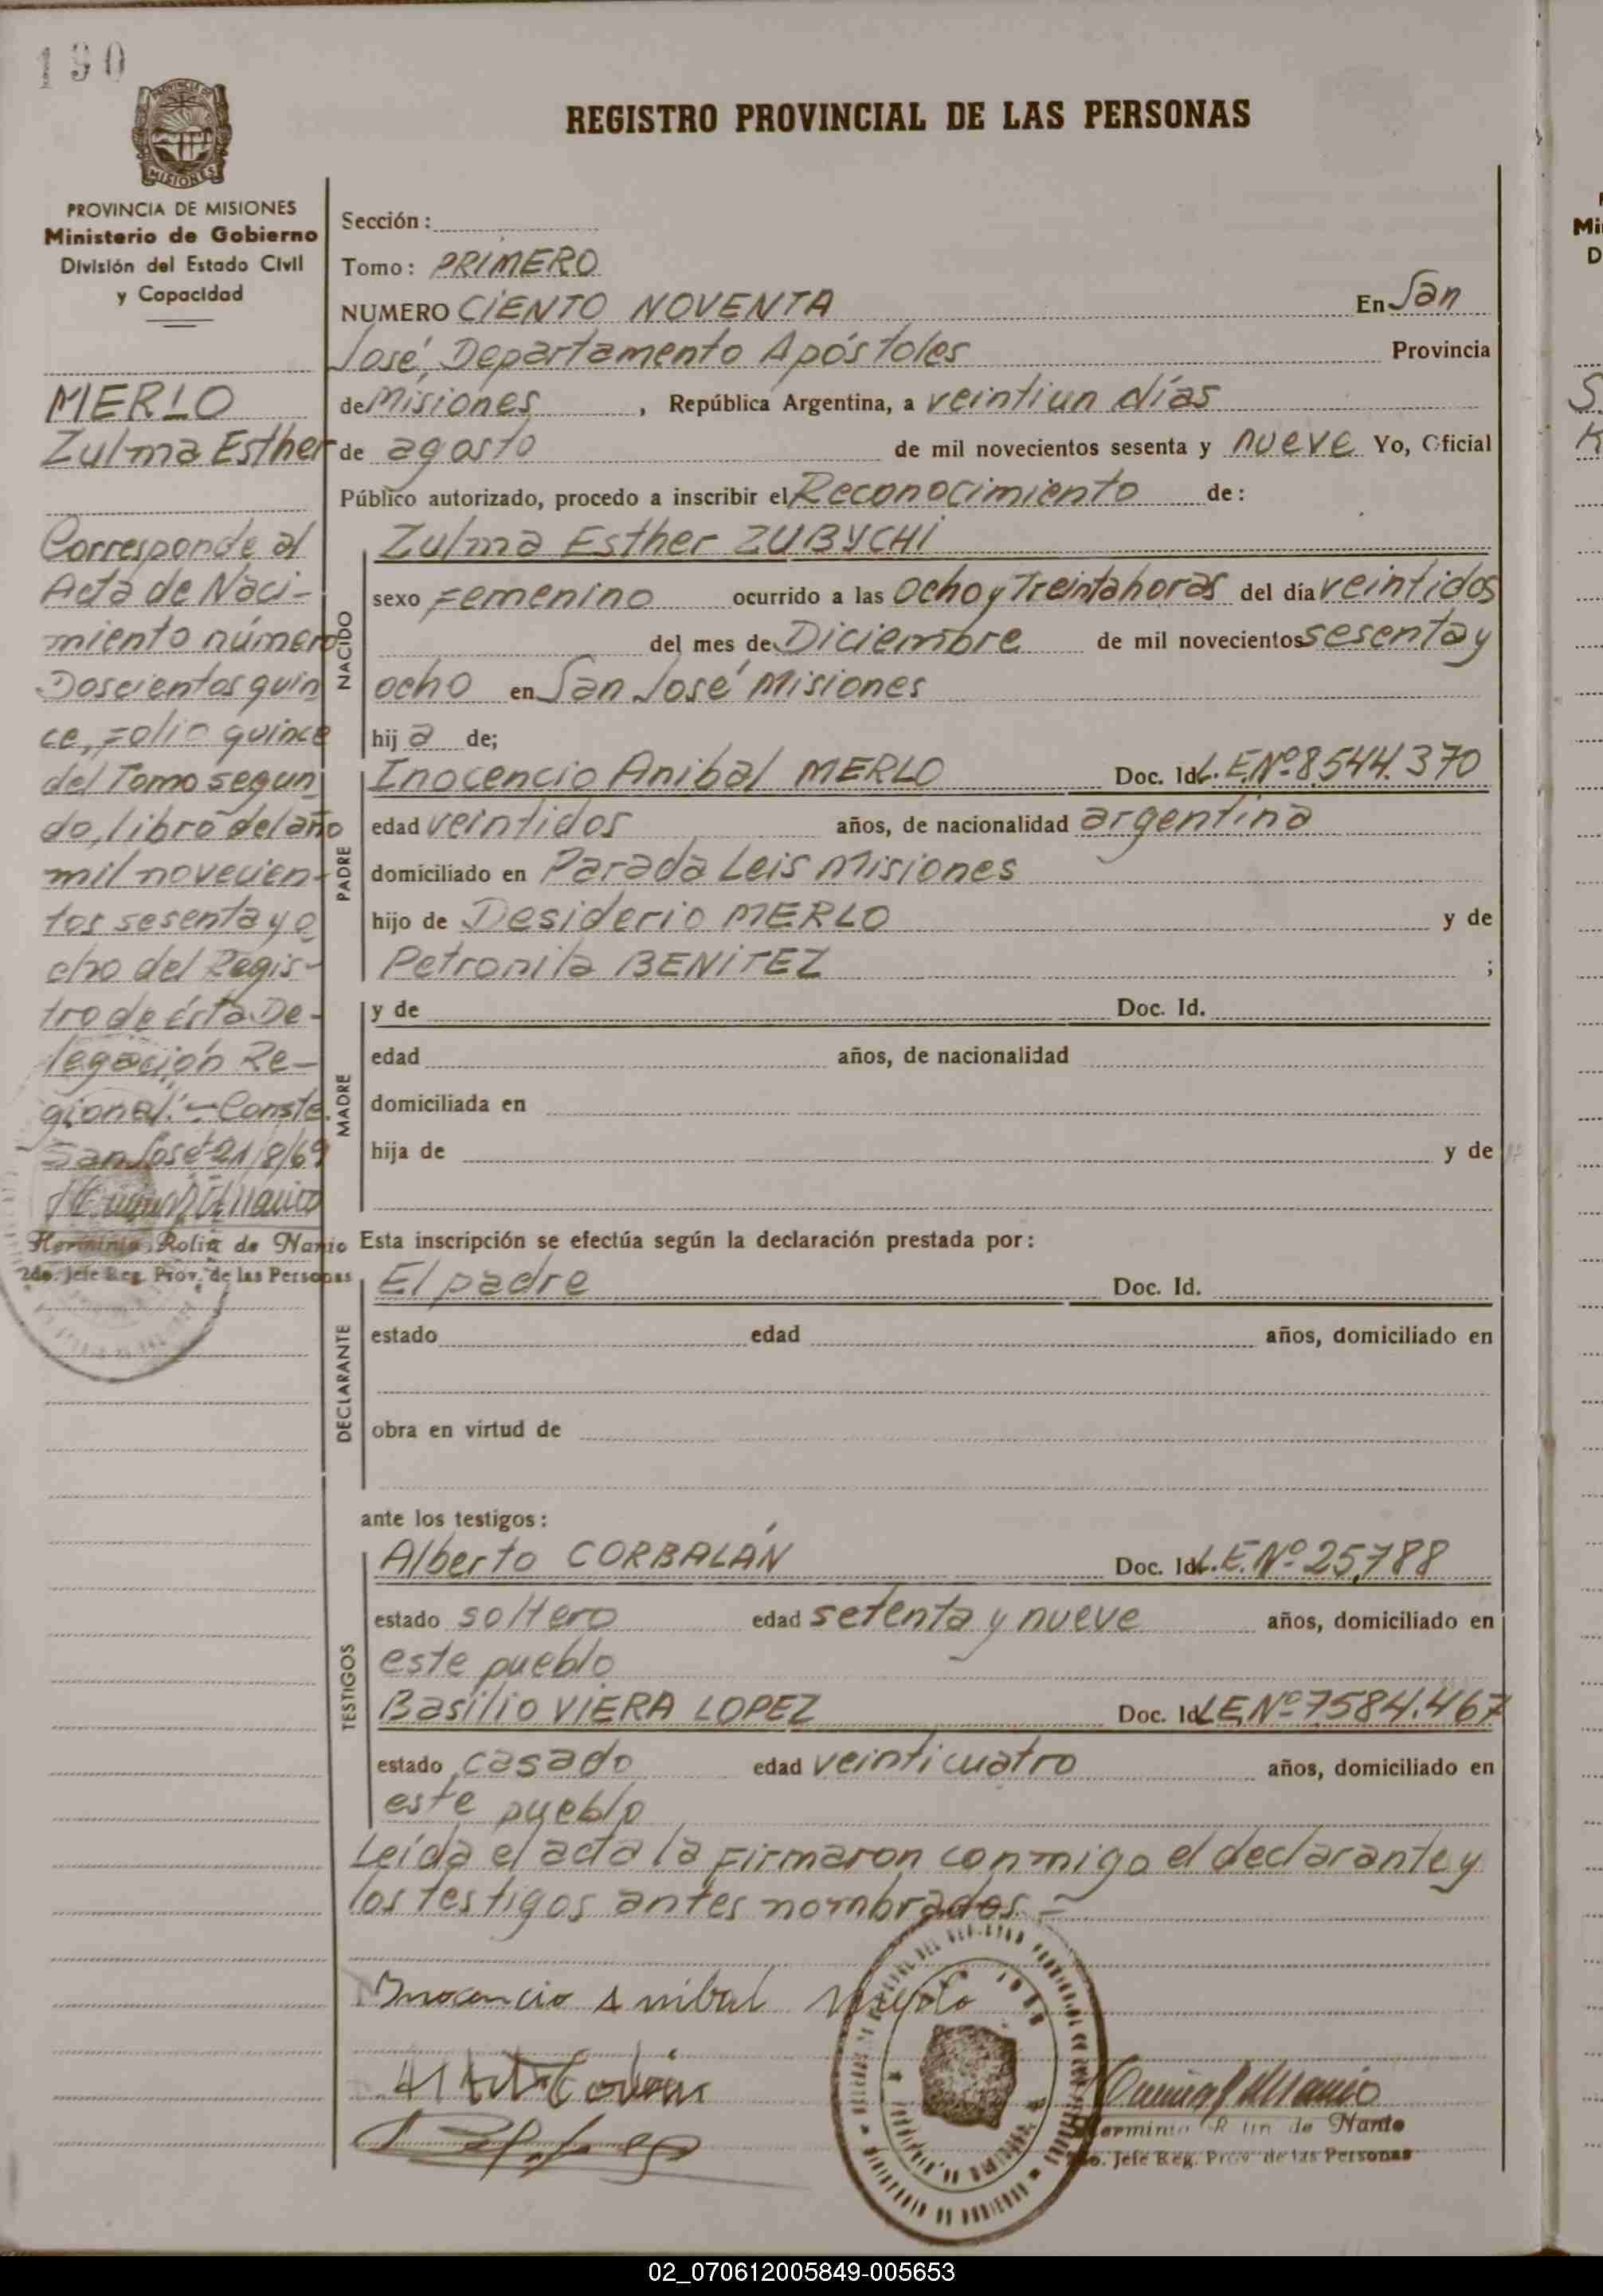 190
PROVINCIA DE MISIONES
Ministerio de Gobierno
División del Estado Civil
y Capacidad
MERLO
Zulma Esther
Corresponde al
Acta de Naci-
miento número
Doscientos quin
ce, Folio quince
del Tomo segun
do, libro del año
mil novecien-
tos sesenta y o
cho del Regis-
tro de ésta De-
legación Re-
gional.- Conste.
San José 21/8/69
Herminia Rolin de Nanio
2do. Jefe Reg. Prov. de las Personas
REGISTRO PROVINCIAL DE LAS PERSONAS
Sección:
Tomo: PRIMERO
NUMERO CIENTO NOVENTA En San
José, Departamento Apóstoles Provincia
de Misiones, República Argentina, a veintiun días
de agosto de mil novecientos sesenta y nueve Yo, Oficial
Público autorizado, procedo a inscribir el Reconocimiento de:
Zulma Esther ZUBYCHI
NACIDO
sexo Femenino ocurrido a las ocho y Treinta horas del día veintidos
del mes de Diciembre de mil novecientos sesenta y
ocho en San José Misiones
hija de;
PADRE
Inocencio Anibal MERLO Doc. Id. L.E.Nº 8.544.370
edad veintidos años, de nacionalidad argentina
domiciliado en Parada Leis Misiones
hijo de Desiderio MERLO y de
Petronila BENITEZ ;
MADRE
y de Doc. Id.
edad años, de nacionalidad
domiciliada en
hija de y de
Esta inscripción se efectúa según la declaración prestada por:
DECLARANTE
El padre Doc. Id.
estado edad años, domiciliado en
obra en virtud de
ante los testigos:
TESTIGOS
Alberto CORBALÁN Doc. Id. L.E.Nº 25,788
estado soltero edad setenta y nueve años, domiciliado en
este pueblo
Basilio VIERA LOPEZ Doc. Id. L.E.Nº 7.584.467
estado casado edad veinticuatro años, domiciliado en
este pueblo
Leída el acta la Firmaron conmigo el declarante y
los testigos antes nombrados.-
Inocencio Anibal Merlo
Herminia Rolin de Nanio
2do. Jefe Reg. Prov. de las Personas
02_070612005849-005653